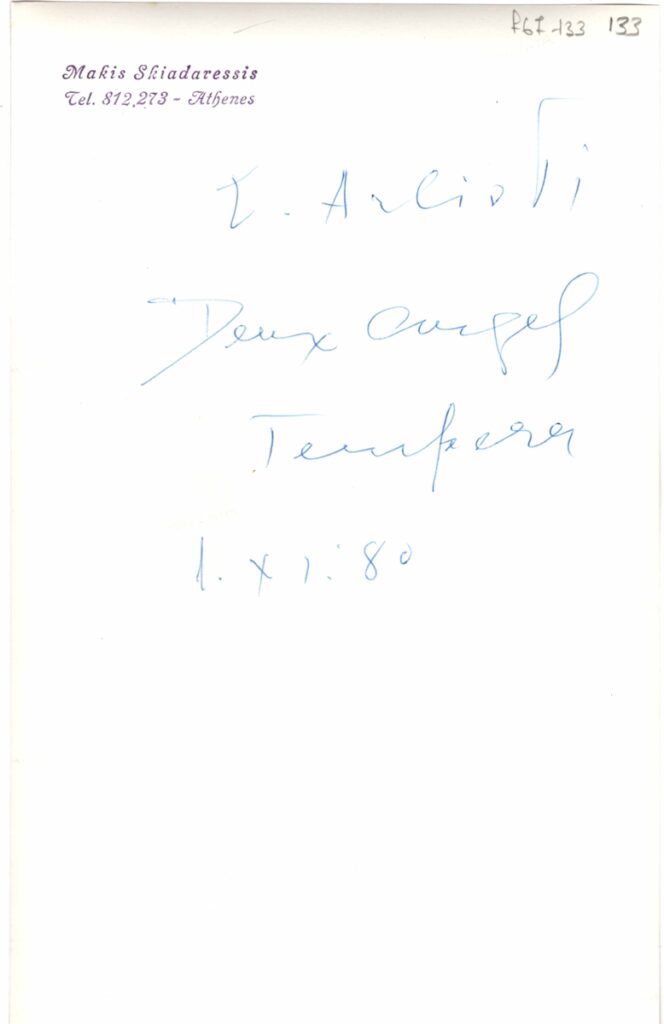 P67-133 133
Makis Skiadaressis
Tel. 812.273 - Athenes
Σ. Arlioti
Deux anges
Tempera
1. x1. 80